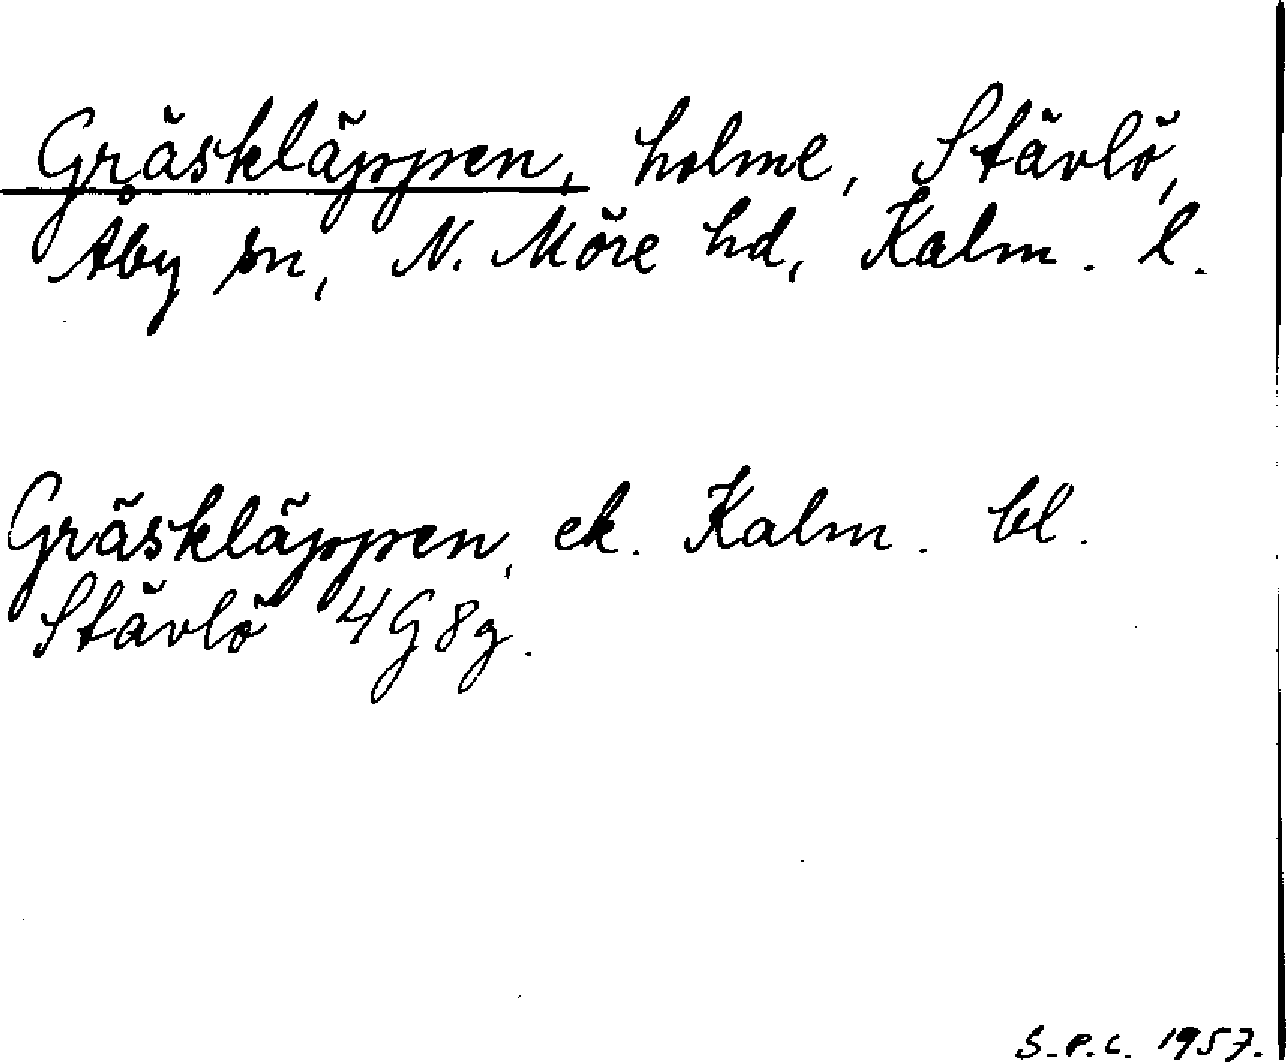 Gräskläppen, holme, Stävlö,
Åby sn, N. Möre hd, Kalm. l.
Gräskläppen, ek. Kalm. bl.
Stävlö 4G8g.
S.P.C. 1957.